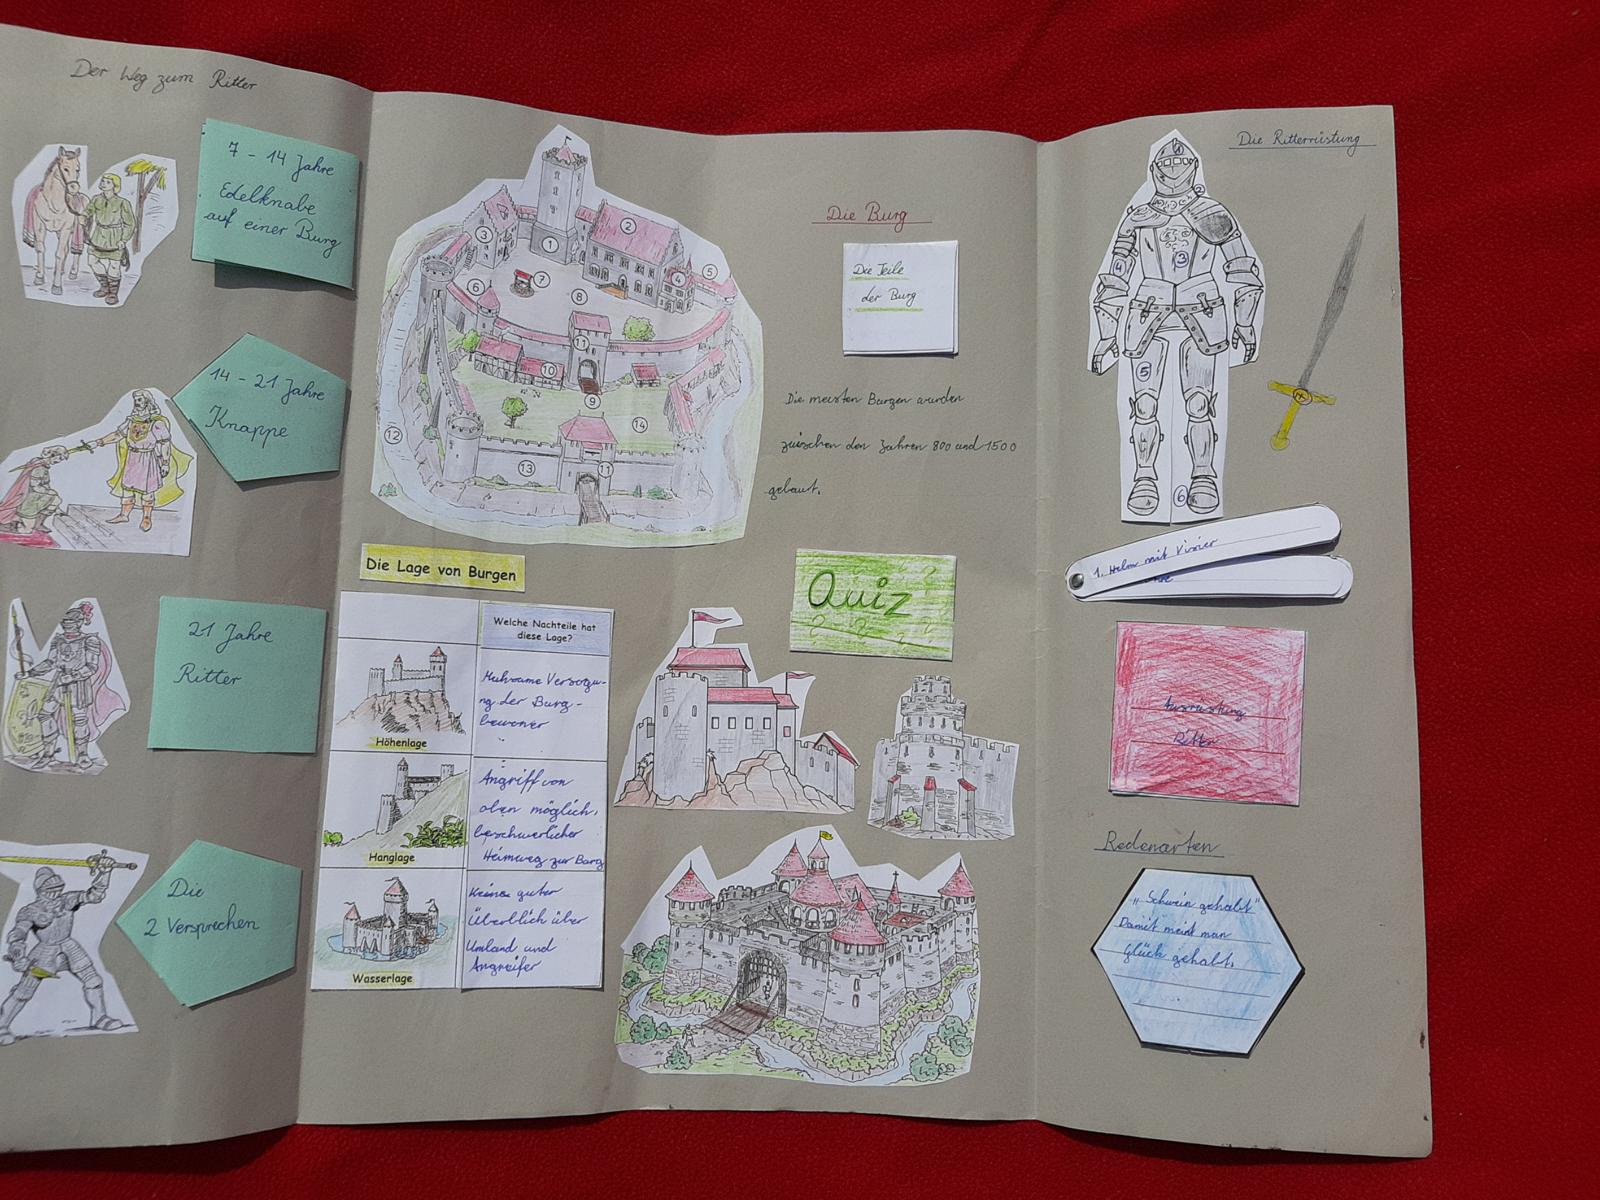 Der Weg zum Ritter
7 - 14 Jahre
Edelknabe
auf einer Burg
14 - 21 Jahre
Knappe
21 Jahre
Ritter
Die
2 Versprechen
1
2
3
4
5
6
7
8
9
10
11
11
12
13
14
Die Burg
Die Teile
der Burg
Die meisten Burgen wurden
zwischen den Jahren 800 und 1500
gebaut.
Die Lage von Burgen
Welche Nachteile hat
diese Lage?
Höhenlage
Mühsame Versorgu-
ng der Burg-
bewoner
Hanglage
Angriff von
oben möglich,
beschwerlicher
Heimweg zur Burg
Wasserlage
Keine guter
Überblich über
Umland und
Angreifer
Quiz
Die Ritterrüstung
1
2
3
4
5
6
1. Helm mit Visier
Ausrüstung
Ritter
Redenarten
"Schwein gehabt"
Damit meint man
Glück gehabt.